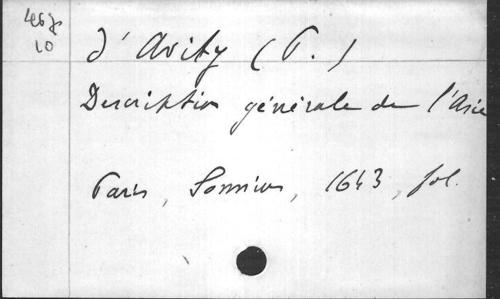 10
d'Avity (P.)
Description générale de l'Asie
Paris, Sonnius, 1643, fol.